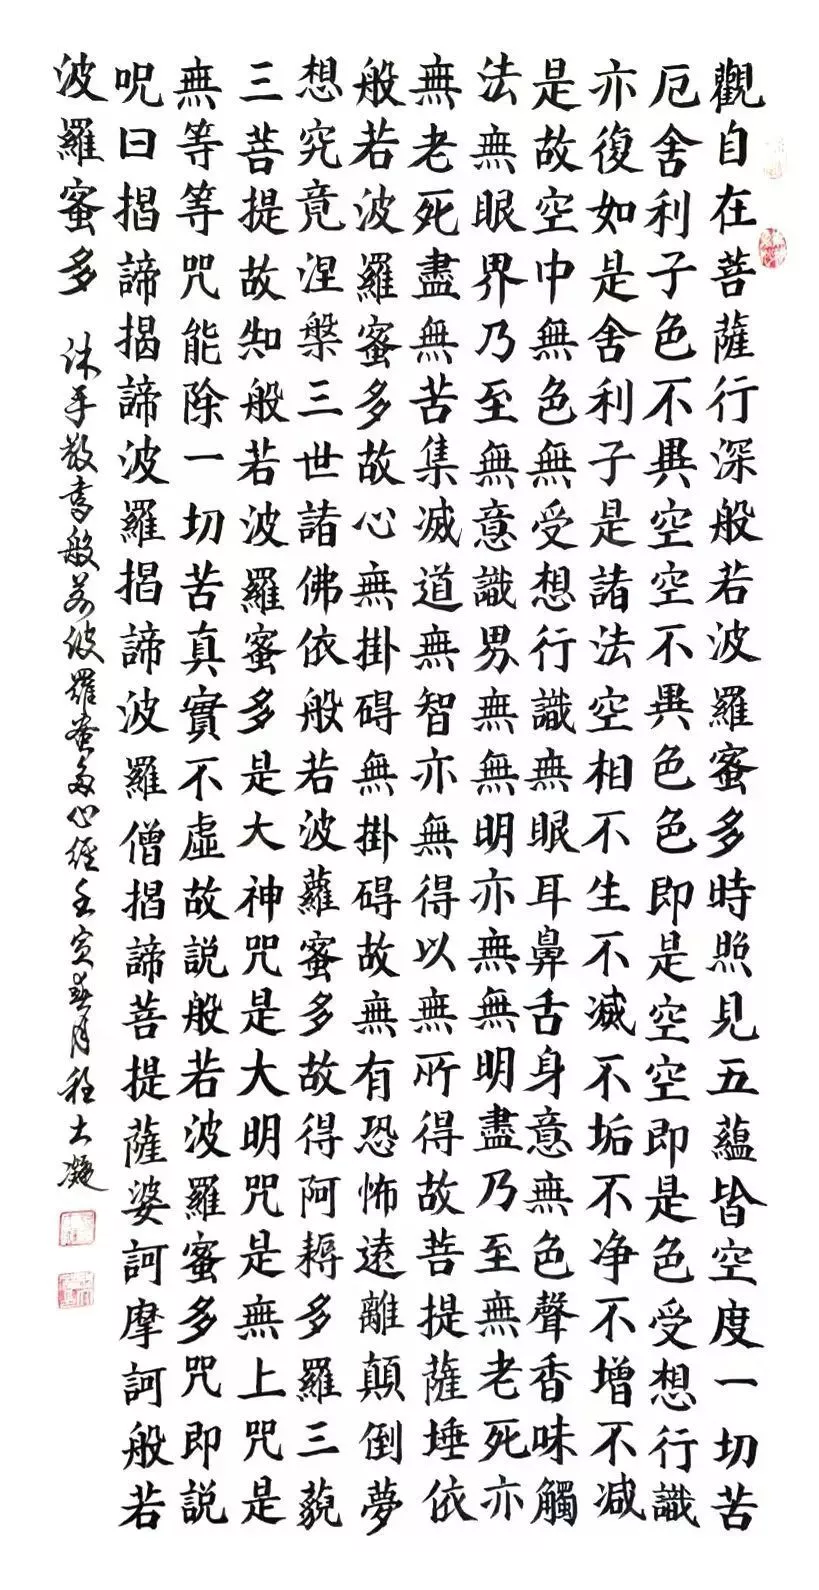 觀自在菩薩行深般若波羅蜜多時照見五蘊皆空度一切苦
厄舍利子色不異空空不異色色即是空空即是色受想行識
亦復如是舍利子是諸法空相不生不滅不垢不净不增不減
是故空中無色無受想行識無眼耳鼻舌身意無色聲香味觸
法無眼界乃至無意識界無無明亦無無明盡乃至無老死亦
無老死盡無苦集滅道無智亦無得以無所得故菩提薩埵依
般若波羅蜜多故心無掛碍無掛碍故無有恐怖遠離顛倒夢
想究竟涅槃三世諸佛依般若波蘿蜜多故得阿耨多羅三藐
三菩提故知般若波羅蜜多是大神咒是大明咒是無上咒是
無等等咒能除一切苦真實不虛故説般若波羅蜜多咒即説
呪曰揭諦揭諦波羅揭諦波羅僧揭諦菩提薩婆訶摩訶般若
波羅蜜多
沐手敬書般若波羅蜜多心經壬寅春月程士凝